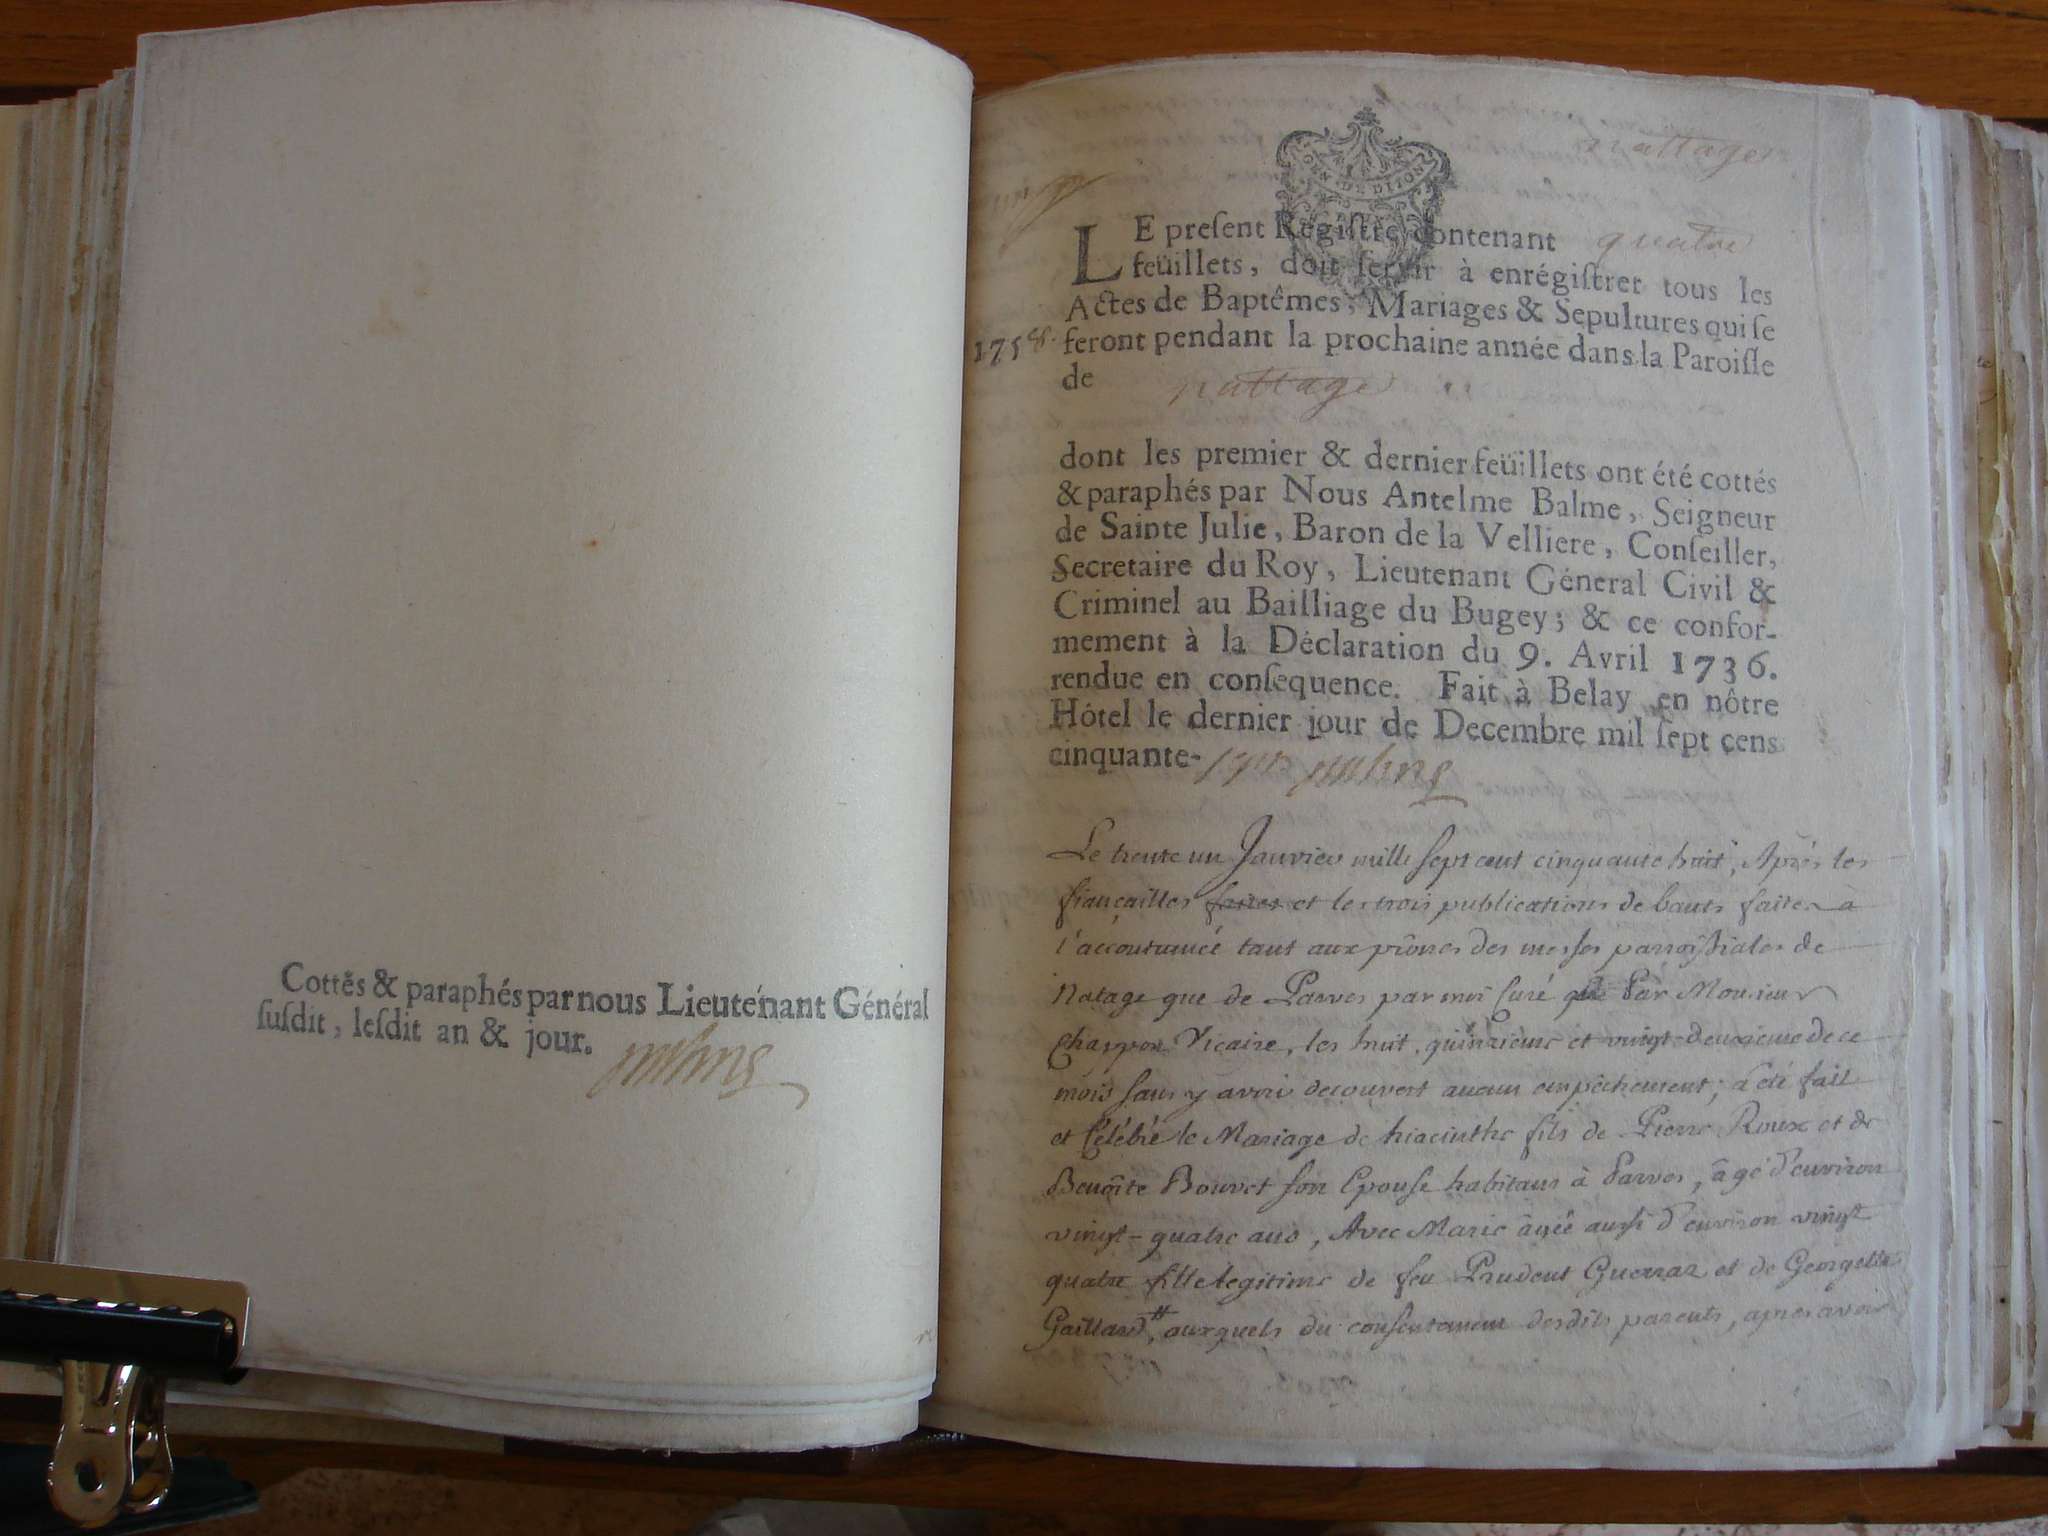 Cottés & paraphés par nous Lieutenant Général
ſuſdit, leſdit an & jour.
GEN. DE DIJON
nattages
quatre
LE preſent Regiſtre contenant
feüillets, doit ſervir à enrégiſtrer tous les
Actes de Baptêmes, Mariages & Sepultures qui ſe
1758.
feront pendant la prochaine année dans la Paroiſſe
de nattages
dont les premier & dernier feüillets ont été cottés
& paraphés par Nous Antelme Balme, Seigneur
de Sainte Julie, Baron de la Velliere, Conſeiller,
Secretaire du Roy, Lieutenant Géneral Civil &
Criminel au Bailliage du Bugey; & ce confor-
mement à la Déclaration du 9. Avril 1736.
rendue en conſequence. Fait à Belay en nôtre
Hôtel le dernier jour de Decembre mil ſept cens
cinquante- sept
Le trente un Janvier mille sept cent cinquante huit, Après les
fiançailles faites et les trois publications de bants faites à
l'accoutumée tant aux prônes des messes parroissiales de
Natage que de Parves par moi Curé que Par Monsieur
Chappon Vicaire, les huit, quinzieme et vingt-deuxieme de ce
mois sans y avoir decouvert aucun empêchement; a été fait
et Célébré le Mariage de hiacinthe fils de Pierre Roux et de
Benoîte Bouvet son Epouse habitans à Parves, âgé d'environ
vingt-quatre ans, Avec Marie âgée aussi d'environ vingt
quatre fille legitime de feu Prudent Guerraz et de Georgette
Gaillard,# auxquels du consentement desdits parents, apres avoir